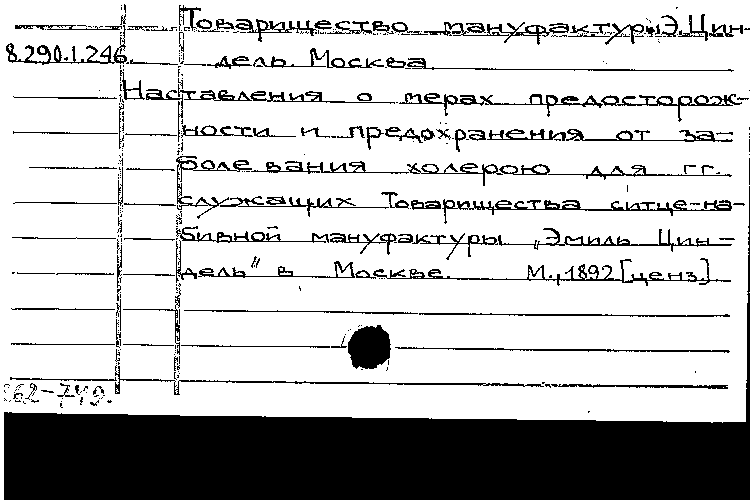 Товарищество мануфактуры Э. Цин-
8.290.1.246. дель. Москва.
Наставления о мерах предосторож-
ности и предохранения от за-
болевания холерою для гг.
служащих Товарищества ситце-на-
бивной мануфактуры „Эмиль Цин-
дель" в Москве. М., 1892 [ценз.]
62-749.